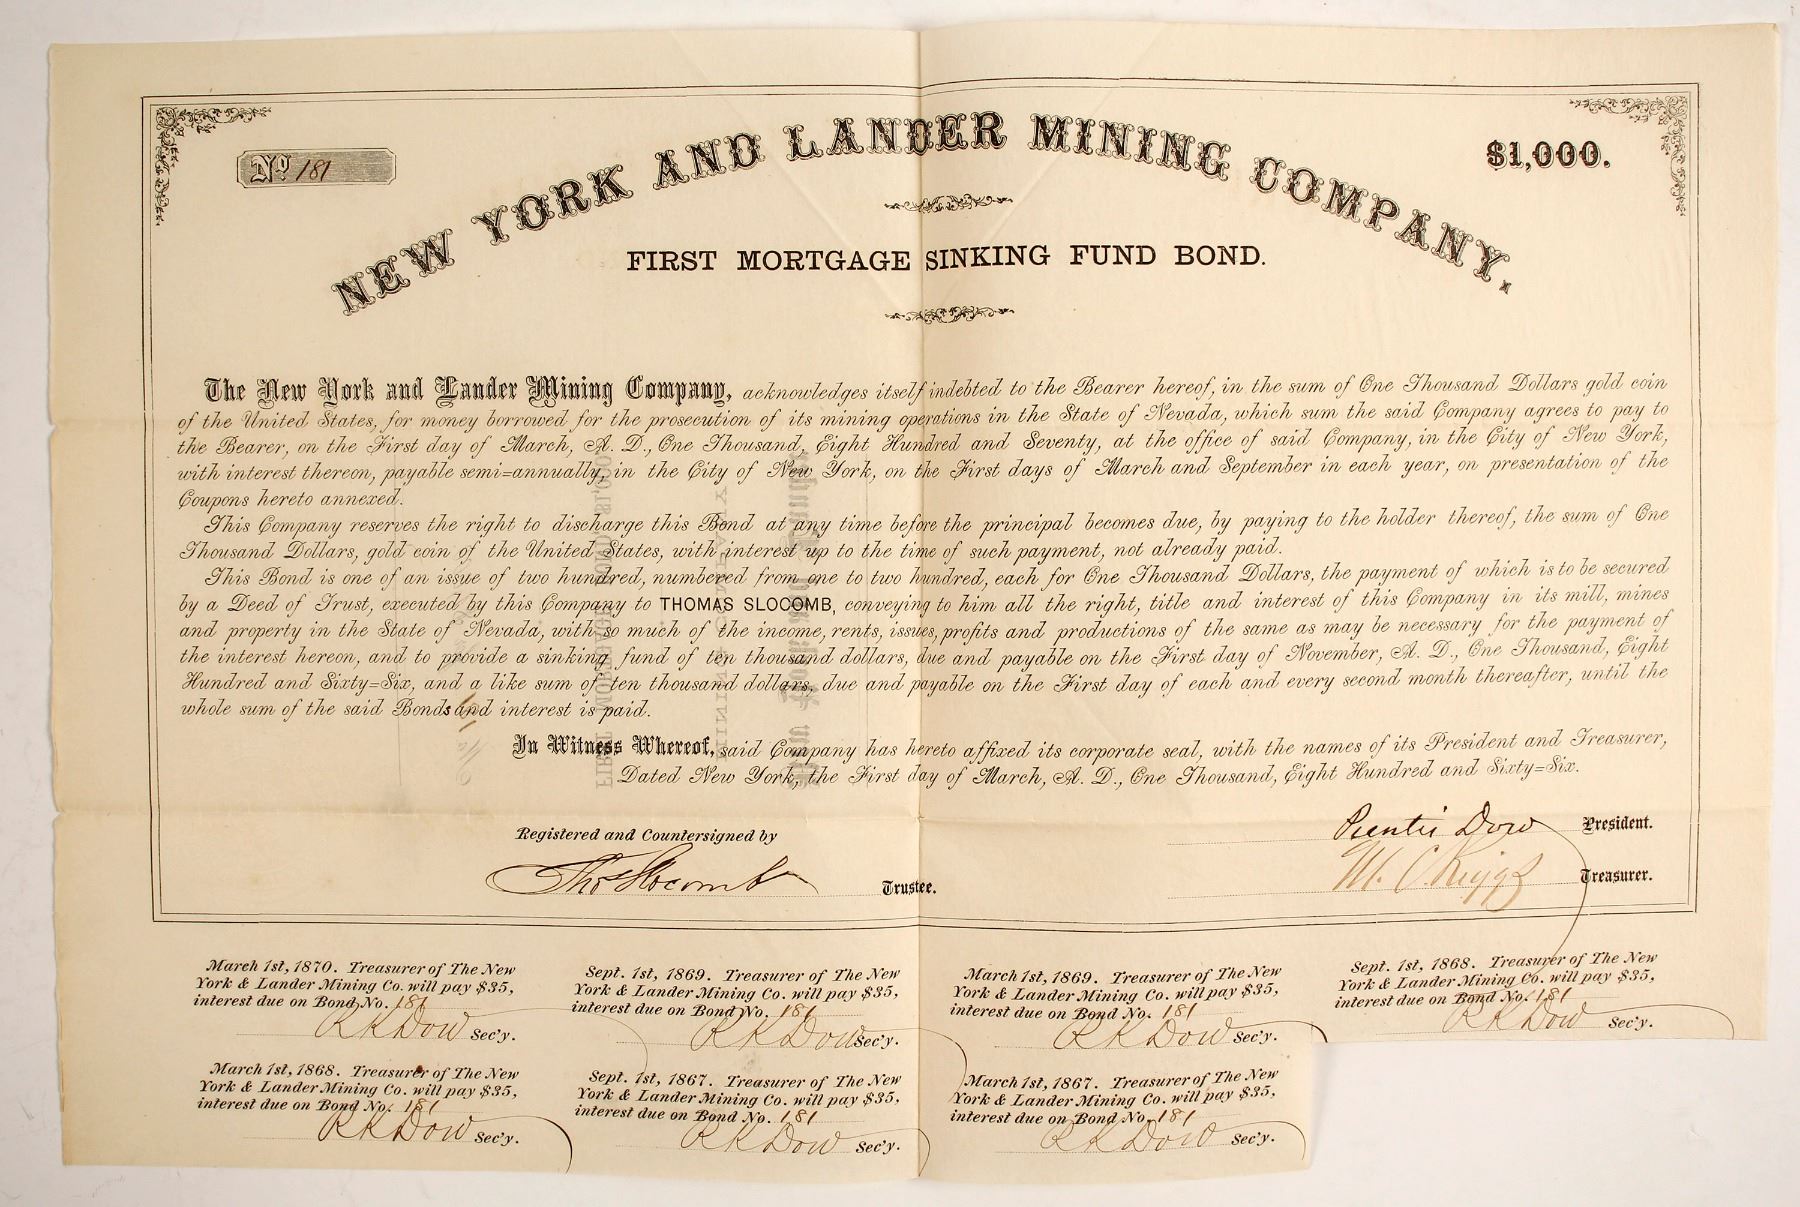 No. 181
$1,000.
NEW YORK AND LANDER MINING COMPANY.
FIRST MORTGAGE SINKING FUND BOND.
The New York and Lander Mining Company, acknowledges itself indebted to the Bearer hereof, in the sum of One Thousand Dollars gold coin
of the United States, for money borrowed for the prosecution of its mining operations in the State of Nevada, which sum the said Company agrees to pay to
the Bearer, on the First day of March, A. D., One Thousand, Eight Hundred and Seventy, at the office of said Company, in the City of New York,
with interest thereon, payable semi=annually, in the City of New York, on the First days of March and September in each year, on presentation of the
Coupons hereto annexed.
This Company reserves the right to discharge this Bond at any time before the principal becomes due, by paying to the holder thereof, the sum of One
Thousand Dollars, gold coin of the United States, with interest up to the time of such payment, not already paid.
This Bond is one of an issue of two hundred, numbered from one to two hundred, each for One Thousand Dollars, the payment of which is to be secured
by a Deed of Trust, executed by this Company to THOMAS SLOCOMB, conveying to him all the right, title and interest of this Company in its mill, mines
and property in the State of Nevada, with so much of the income, rents, issues, profits and productions of the same as may be necessary for the payment of
the interest hereon, and to provide a sinking fund of ten thousand dollars, due and payable on the First day of November, A. D., One Thousand, Eight
Hundred and Sixty=Six, and a like sum of ten thousand dollars, due and payable on the First day of each and every second month thereafter, until the
whole sum of the said Bonds and interest is paid.
In Witness Whereof, said Company has hereto affixed its corporate seal, with the names of its President and Treasurer,
Dated New York, the First day of March, A. D., One Thousand, Eight Hundred and Sixty=Six.
Registered and Countersigned by
Thos Slocomb Trustee.
Prentis Dow President.
M. C. Riggs Treasurer.
March 1st, 1870. Treasurer of The New
York & Lander Mining Co. will pay $35,
interest due on Bond No. 181
R K Dow Sec'y.
Sept. 1st, 1869. Treasurer of The New
York & Lander Mining Co. will pay $35,
interest due on Bond No. 181
R K Dow Sec'y.
March 1st, 1869. Treasurer of The New
York & Lander Mining Co. will pay $35,
interest due on Bond No. 181
R K Dow Sec'y.
Sept. 1st, 1868. Treasurer of The New
York & Lander Mining Co. will pay $35,
interest due on Bond No. 181
R K Dow Sec'y.
March 1st, 1868. Treasurer of The New
York & Lander Mining Co. will pay $35,
interest due on Bond No. 181
R K Dow Sec'y.
Sept. 1st, 1867. Treasurer of The New
York & Lander Mining Co. will pay $35,
interest due on Bond No. 181
R K Dow Sec'y.
March 1st, 1867. Treasurer of The New
York & Lander Mining Co. will pay $35,
interest due on Bond No. 181
R K Dow Sec'y.